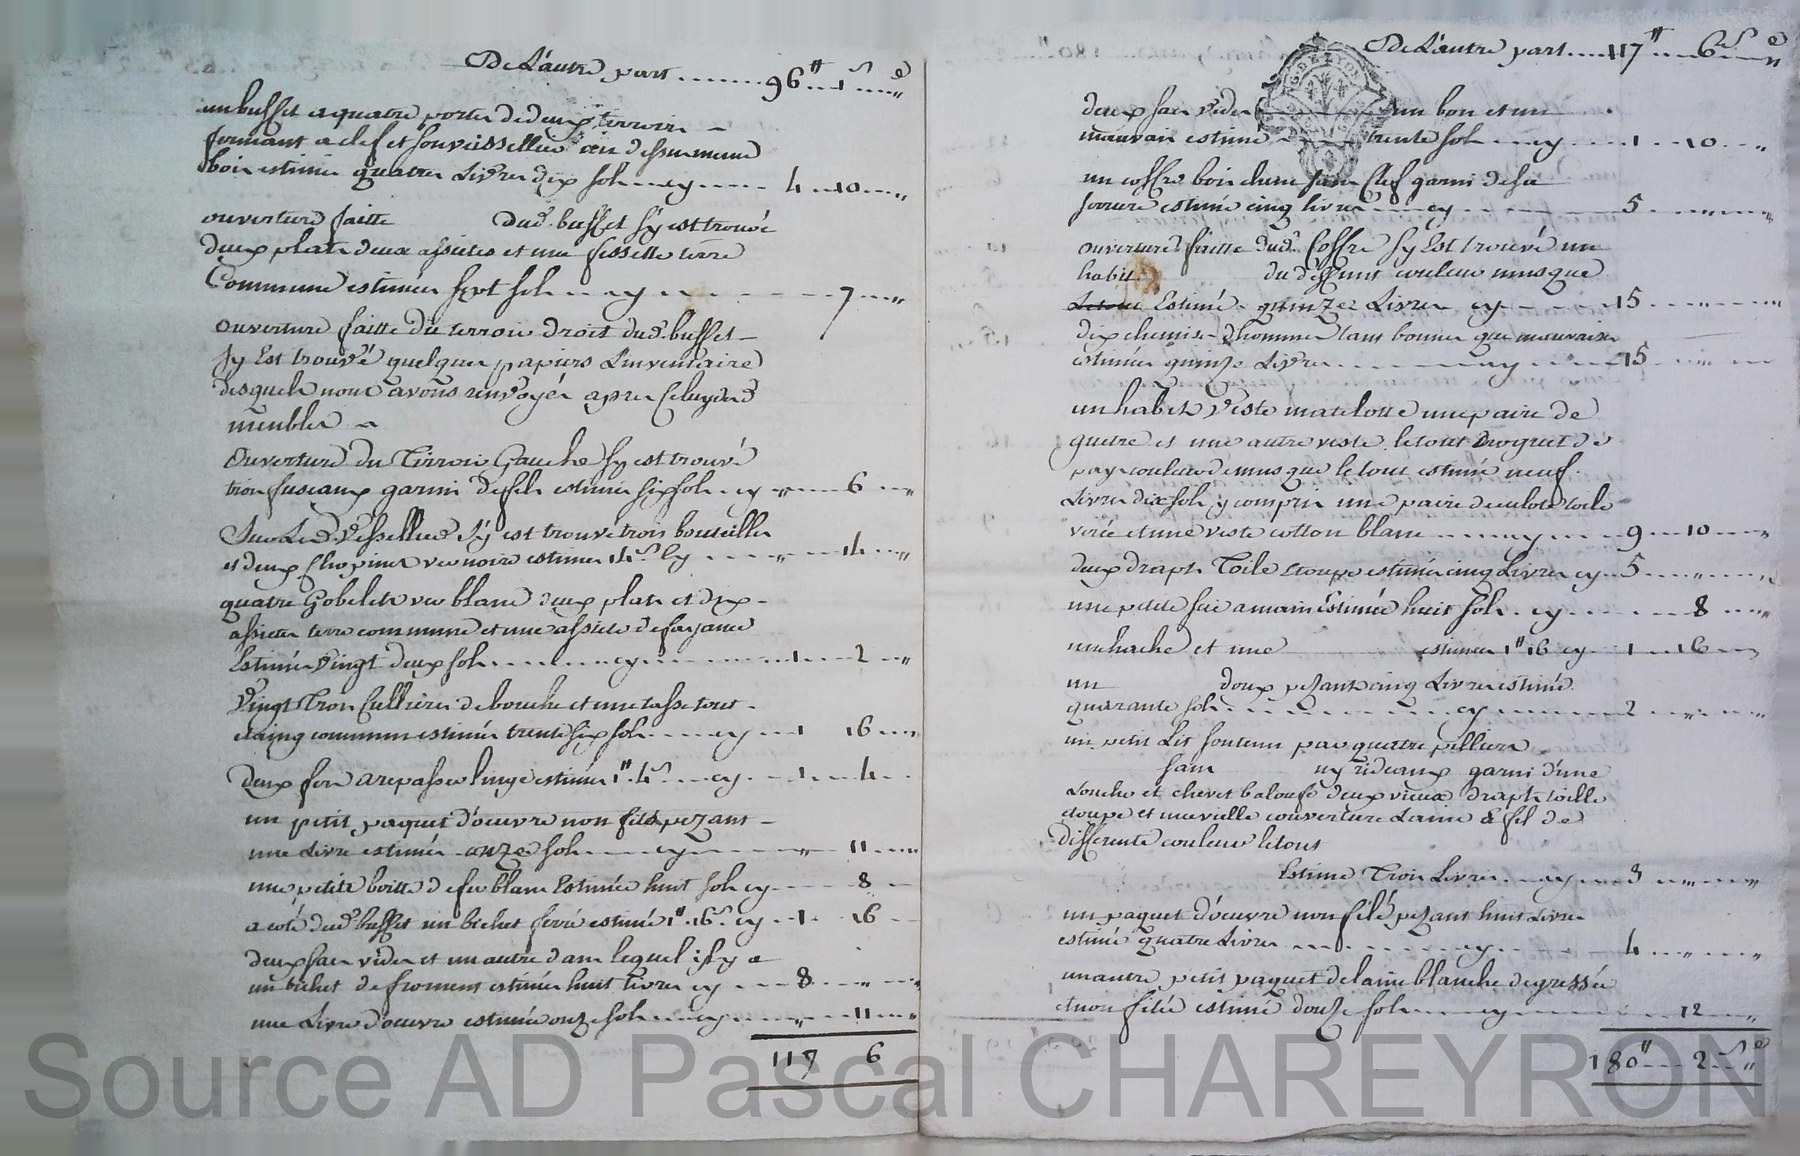 De L'autre part ........ 96tt .. 1s .... "d
un buffet a quatre portes de deux terroirs
fermant a clef et son veissellier au dessus meme
bois estimés quatres Livres dix sols .... cy ...... 4 .. 10 .... "
ouverture faitte dud. buffet s'y est trouvé
deux plats deux assietes et une fesselle terre
Commune estimées sept sols .... cy ...... 7 .... "
ouverture faitte du terroir droit dud. buffet
s'y Est trouvé quelques papiers L'inventaire
desquels nous avons renvoyés apres Celuy des
meubles
Ouverture du Tirroir Gauche s'y est trouvé
trois fuseaux garni de fil estimés six sols .. cy .. " .... 6 ... "
Sur Led. Vessellier s'y est trouvé trois bouteilles
et deux Chopines ver noire estimés 14s Cy ...... " .... 14 .... "
quatre Gobelets ver blanc deux plats et dix
assietes terre commune et une assiete de fayance
Estimés Vingt deux sols ........ cy ...... 1 .... 2 .... "
Vingt Trois Cullieres de bouche et une tasse tout
etaing commun estimés trente six sols .... cy .. 1 16 .... "
Deux fers a repasser linge estimés 1tt 4s .... cy .. 1 .... 4 ..
un petit paquet d'oeuvre non filé pezant
une Livre estimée onze sols .... cy ...... " .... 11 .... "
une petite boitte de fer blanc Estimée huit sols cy .... 8 ...
a coté dud. buffet un bichet ferré estimé 1tt 16s cy .. 1 .. 16 ..
deux sacs vides et un autre dans lequel il y a
un bichet de froment estimés huit Livres cy .... 8 .... " .... "
une Livre d'oeuvre estimée onze sols .... cy .... " .... 11 .... "
117 6
De L'autre part .... 117tt .... 6s .... "d
deux sacs vides un bon et un
mauvais estimé trente sols .... cy .... 1 .. 10 .... "
un coffre bois chene sans Clef garni de sa
serrure estimé cinq livres .... cy ...... 5 .... " .... "
ouverture faitte dud. Coffre s'y Est trouvé un
habit du deffunt couleur musque
Estimé quinzes Livres cy .... 15 .... " .... "
dix chemises d'hommes tant bonnes que mauvaises
estimées quinze Livres ........ cy .... 15 .... "
un habit Veste matelotte une paire de
guetre et une autre veste le tout Droguet de
pays couleur de musque le tout estimé neuf
Livres dix sols y compris une paire de culote toile
rayée et une veste cotton blanc ...... cy .... 9 .. 10 .... "
deux draps Toile etoupe estimés cinq Livres cy .. 5 .... " .... "
une petite sie a main estimée huit sols .. cy ...... 8 .... "
une hache et une estimées 1tt 16 cy .. 1 .. 16 .. "
un doux pezant cinq Livres estimé
quarante sols ........ cy ........ 2 .... " .... "
un petit Lit soutenu par quatre pilliers
sans ny rideaux garni d'une
Couche et chevet baloufe deux vieux draps toille
etoupe et une vielle couverture Laine & fil de
differente couleur le tous
Estimé Trois Livres .... cy .... 3 .... " .... "
un paquet d'oeuvre non filé pezant huit Livres
estimé quatre Livres ........ cy .... 4 .... " .... "
un autre petit paquet de laine blanche degressée
et non filée estimé douze sols .... cy ...... 12 .... "
180tt .... 2s "d
Source AD Pascal CHAREYRON